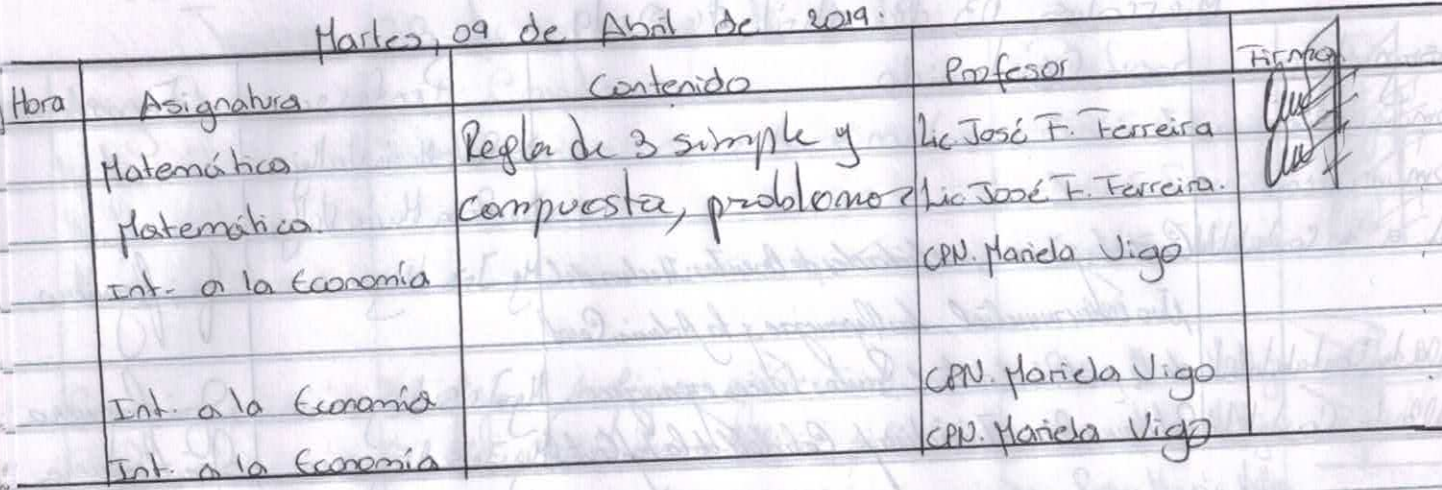 Martes, 09 de Abril de 2019.
Hora Asignatura Contenido Profesor Firma
Matemática Regla de 3 simple y Lic José F. Ferreira
Matemática. compuesta, problemas Lic José F. Ferreira.
Int. a la Economía CPN. Mariela Vigo
Int. a la Economía CPN. Mariela Vigo
Int. a la Economía CPN. Mariela Vigo